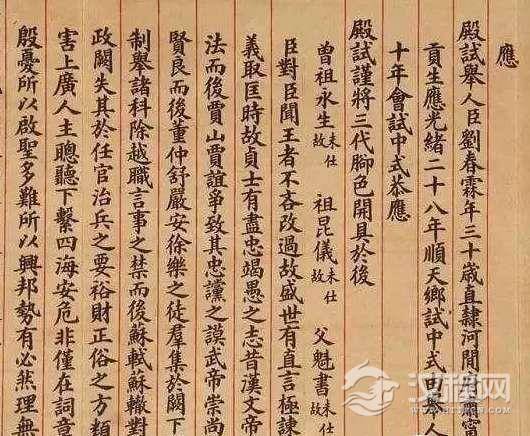 應
殿試舉人臣劉春霖年三十歲直隸河間
貢生應光緒二十八年順天鄉試中式由人
十年會試中式恭應
殿試謹將三代腳色開具於後
曾祖永生未仕故 祖昆儀未仕故 父魁書未仕故
臣對臣聞王者不吝改過故盛世有直言極諫
義取匡時故貞士有盡忠竭愚之志昔漢文帝
法而後賈山賈誼爭致其忠讜之謨武帝崇尚
賢良而後董仲舒嚴安徐樂之徒羣集於闕下
制舉諸科除越職言事之禁而後蘇軾蘇轍對
政闕失其於任官治兵之要裕財正俗之方類
害上廣人主聰聽下繫四海安危非僅在詞章
殷憂所以啟聖多難所以興邦勢有必然理無
汉程网